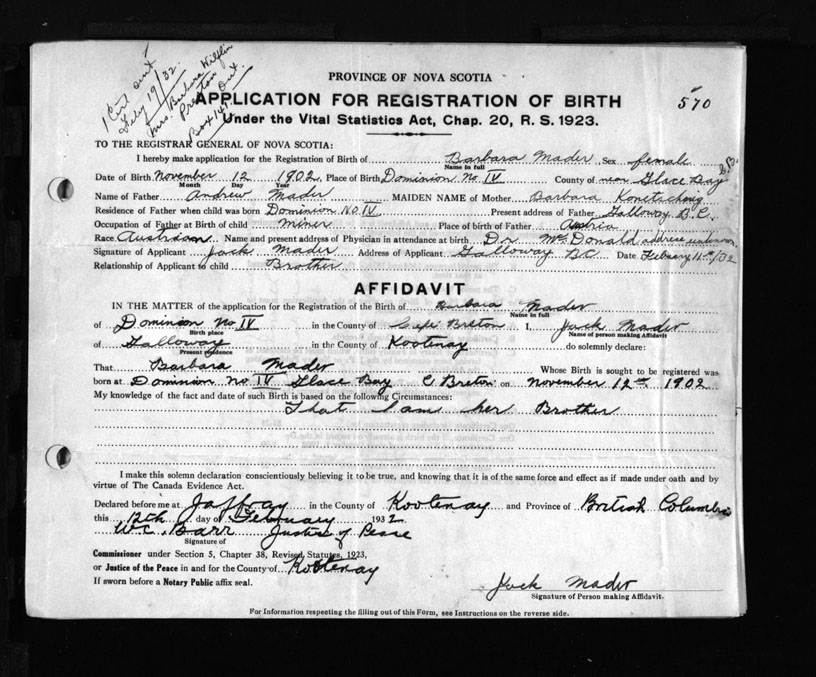 1 Cert sent
July 19/32.
Mrs. Barbara Wilflin
Preston Ont.
Box 141
570
PROVINCE OF NOVA SCOTIA
APPLICATION FOR REGISTRATION OF BIRTH
Under the Vital Statistics Act, Chap. 20, R. S. 1923.
TO THE REGISTRAR GENERAL OF NOVA SCOTIA:
I hereby make application for the Registration of Birth of Barbara Mader Sex female
Name in full
Date of Birth November 12 1902 Place of Birth Dominion No. IV County of near Glace Bay
Month Day Year
Name of Father Andrew Mader MAIDEN NAME of Mother Barbara
Residence of Father when child was born Dominion No IV Present address of Father Galloway B.C.
Occupation of Father at Birth of child miner Place of birth of Father Austria
Race Austrian Name and present address of Physician in attendance at birth Dr McDonald address unknown
Signature of Applicant Jack Mader Address of Applicant Galloway BC Date February 11th/32
Relationship of Applicant to child Brother
AFFIDAVIT
IN THE MATTER of the application for the Registration of the Birth of Barbara Mader
Name in full
of Dominion No IV in the County of Cape Breton I, Jack Mader
Birth place Name of person making Affidavit
of Galloway in the County of Kootenay do solemnly declare:
Present residence
That Barbara Mader Whose Birth is sought to be registered was
born at Dominion No IV Glace Bay C Breton on November 12th 1902
My knowledge of the fact and date of such Birth is based on the following Circumstances:
That I am her Brother
I make this solemn declaration conscientiously believing it to be true, and knowing that it is of the same force and effect as if made under oath and by
virtue of The Canada Evidence Act.
Declared before me at Jaffray in the County of Kootenay and Province of British Columbia
this 12th day of February 1932
W.C. Barr Justice of Peace
Signature of
Commissioner under Section 5, Chapter 38, Revised Statutes, 1923,
or Justice of the Peace in and for the County of Kootenay
If sworn before a Notary Public affix seal.
Jack Mader
Signature of Person making Affidavit.
For Information respecting the filling out of this Form, see Instructions on the reverse side.